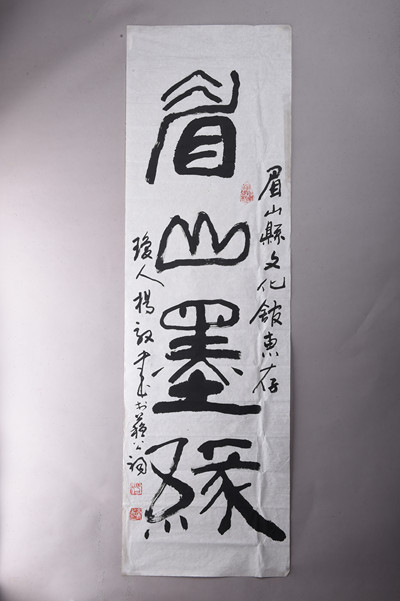 眉山墨緣
眉山縣文化館惠存
瓊人楊毅書於蘇公祠